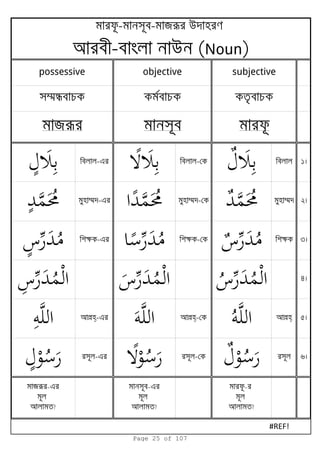 মারফূ-মানসূব-মাজরূর উদাহরণ
আরবী-বাংলা নাউন (Noun)
possessive objective subjective
সম্বন্ধবাচক কর্মবাচক কর্তৃবাচক
মাজরূর মানসূব মারফূ
بِلَالٍ বিলাল-এর بِلَالًا বিলাল-কে بِلَالٌ বিলাল ১।
مُحَمَّدٍ মুহাম্মদ-এর مُحَمَّدًا মুহাম্মদ-কে مُحَمَّدٌ মুহাম্মদ ২।
مُدَرِّسٍ শিক্ষক-এর مُدَرِّسًا শিক্ষক-কে مُدَرِّسٌ শিক্ষক ৩।
الْمُدَرِّسِ الْمُدَرِّسَ الْمُدَرِّسُ ৪।
اللَّهِ আল্লাহ্-এর اللَّهَ আল্লাহ্-কে اللَّهُ আল্লাহ্ ৫।
رَسُوْلٍ রসূল-এর رَسُوْلًا রসূল-কে رَسُوْلٌ রসূল ৬।
মাজরূর-এর মানসূব-এর মারফূ-র
মূল মূল মূল
আলামত। আলামত। আলামত।
#REF!
Page 25 of 107